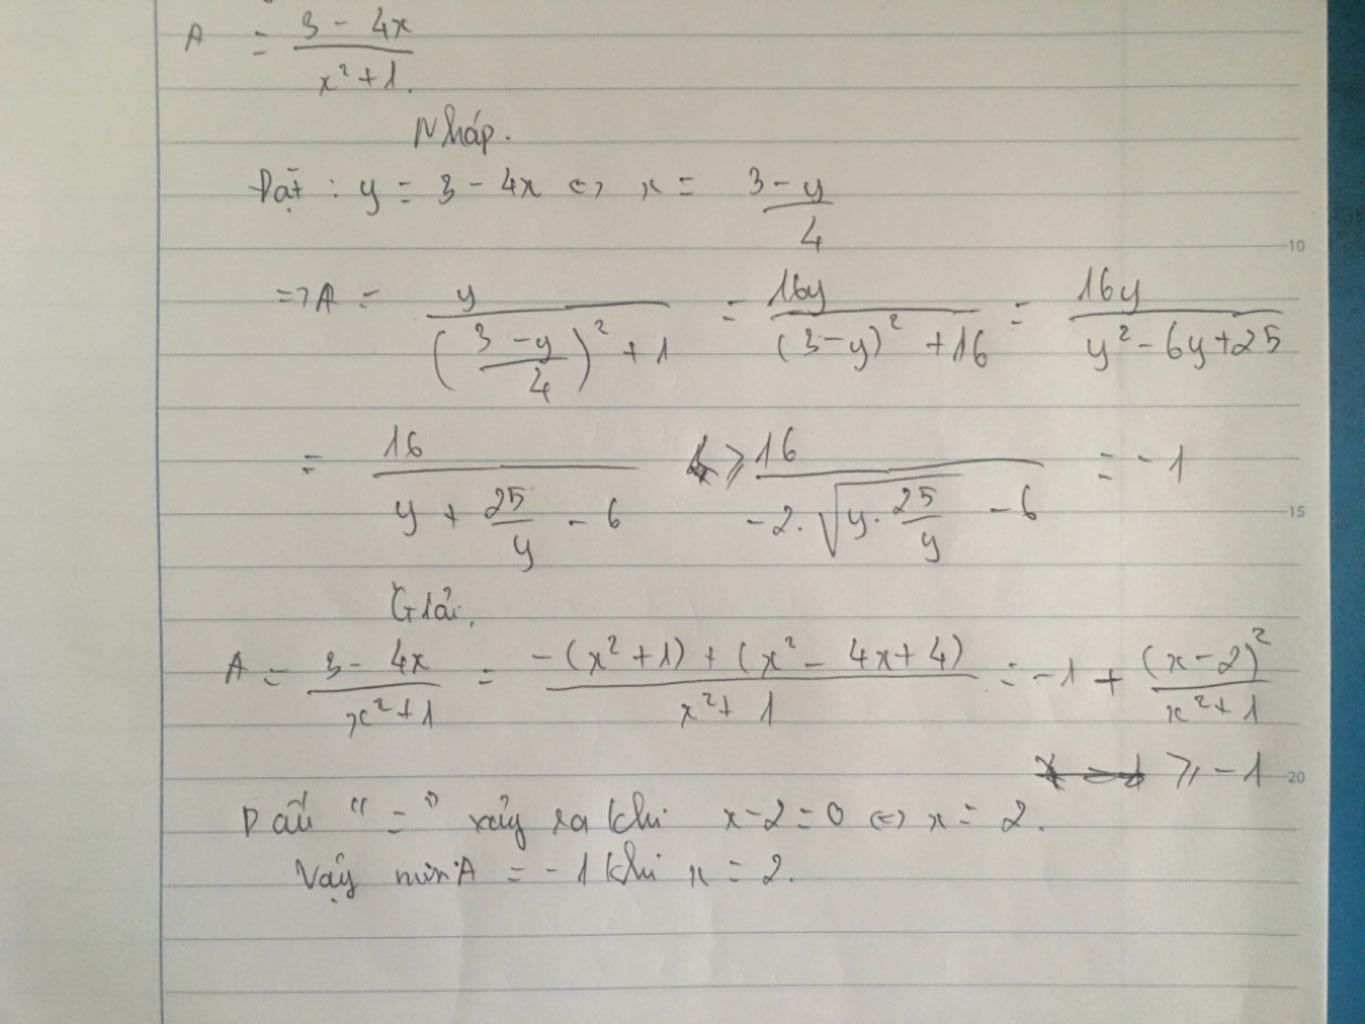 A = (3 - 4x)/(x² + 1).
Nháp.
Đặt : y = 3 - 4x <=> x = (3 - y)/4
=> A = y/(((3 - y)/4)² + 1) = 16y/((3 - y)² + 16) = 16y/(y² - 6y + 25)
= 16/(y + 25/y - 6) ⩾ 16/(-2.√(y.25/y) - 6) = -1
Giải.
A = (3 - 4x)/(x² + 1) = (-(x² + 1) + (x² - 4x + 4))/(x² + 1) = -1 + (x - 2)²/(x² + 1)
⩾ -1
Dấu "=" xảy ra khi x - 2 = 0 <=> x = 2.
Vậy minA = -1 khi x = 2.
10
15
20